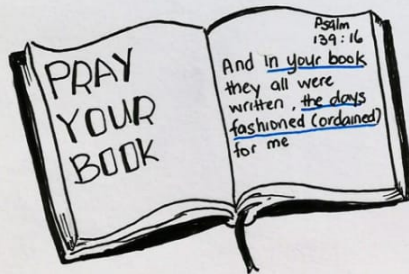 PRAY
YOUR
BOOK
Psalm
139:16
And in your book
they all were
written, the days
fashioned (ordained)
for me